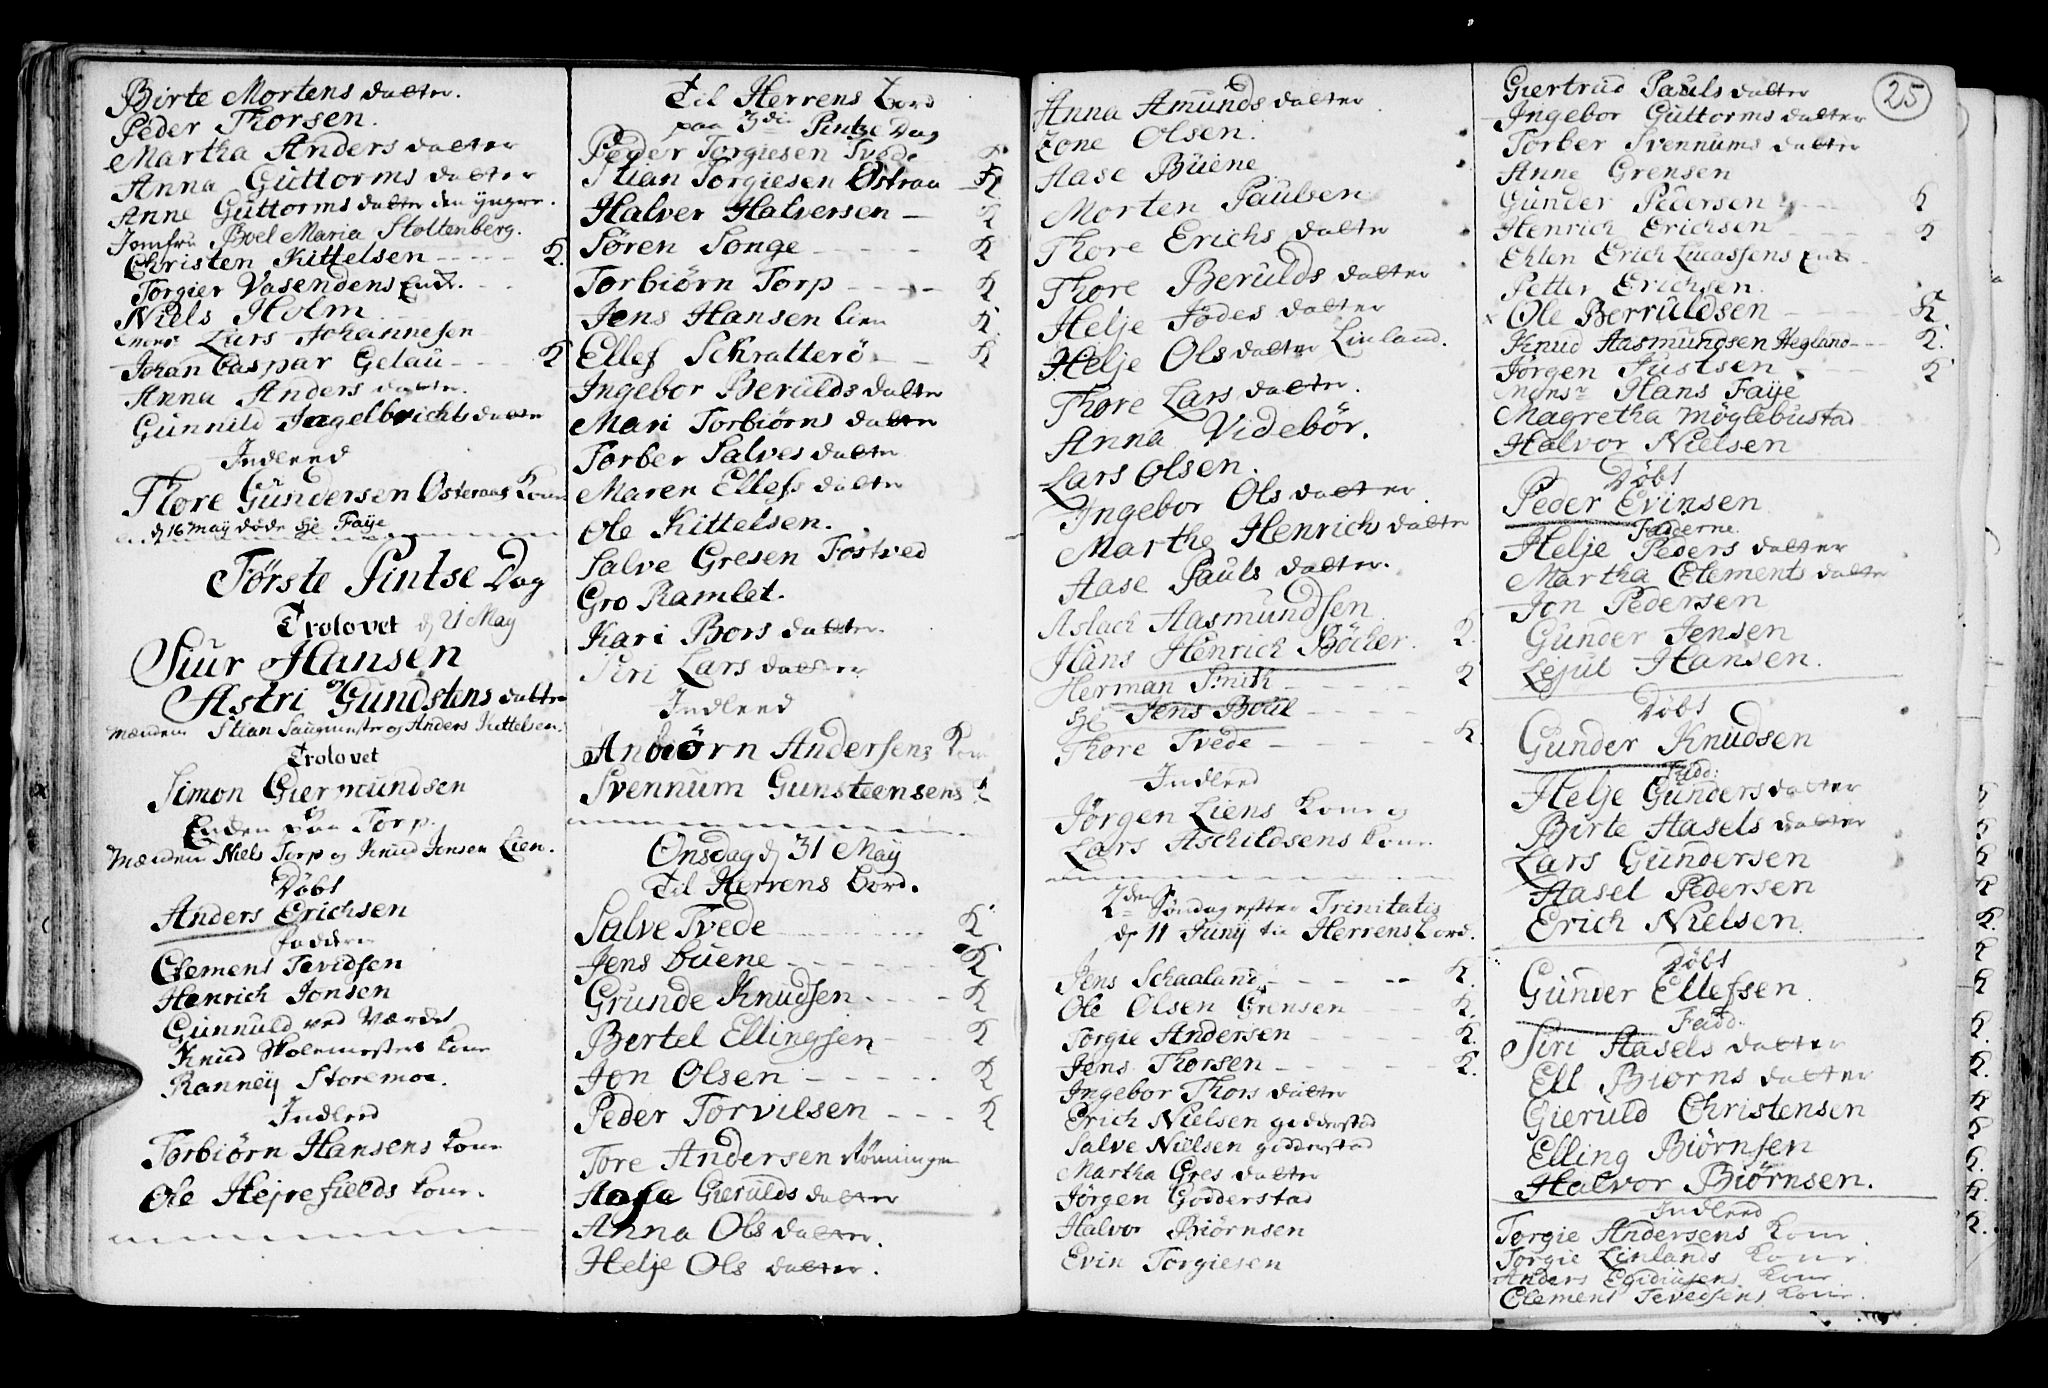 Birte Mortens datter.
Peder Thorsen.
Martha Anders datter
Anna Guttorms datter
Anne Guttorms datter den yngre.
Jomfru Boel Maria Stoltenberg.
Christen Kittelsen - - - - - K.
Torgier Vasendens Enke. - -
Niels Holm
Lars Johannesen
Johan Caspar Gelau - - - K
Anna Anders datter.
Gunnild Ingelbrichts datter
Indleed
Thore Gundersen Osteraas Kone
d 16 May døde Hr Faÿe
Første Pintse Dag
Trolovet d 21 May
Siur Hansen
og
Astri Gundstens datter
Mændene Stian Saugmester og Anders Kittelsen.
Trolovet
Simon Giermundsen
Enken paa Torp.
Mændene Niels Torp og Knud Jensen Lien.
Døbt
Anders Erichsen
Faddere
Clemens Tevedsen
Henrich Jonsen
Gunnuld ved Værdet
Knud Skolemesters Kone
Ranneÿ Storemoe.
Indleed
Torbiørn Hansens Kone
Ole Hejrefields Kone.
Til Herrens Bord
paa 3die Pintze Dag
Peder Torgiesen Tvede K
Stian Torgiesen Østraa - K
Halver Halversen - K
Søren Songe - - - - K
Torbiørn Torp - - - - K
Jens Hansen Lien K.
Ellef Schratterö - - K
Ingebor Berulds datter
Mari Torbiørns datter
Torber Salves datter
Maren Ellefs datter
Ole Kittelsen.
Salve Gresen Fostved
Gro Ramlet.
Kari Bors datter.
Siri Lars datter
Indleed
Anbiørn Andersens Kone
Svennum Gunsteensens K
Onsdag d 31 May
Til Herrens Bord.
Salve Tvede - - - - K
Jens Buene - - - - K
Grunde Knudsen - - - - K
Bertel Ellingsen - - - - K
Jon Olsen - - - - - K
Peder Torvilsen - - - K
Tore Andersen Rønningen
Aase Gierulds datter
Anna Ols datter.
Helje Ols datter.
Anna Amunds datter
Zone Olsen.
Aase Büene
Morten Paulsen
Thore Erichs datter
Thore Berulds datter
Helje Jødes datter
Helje Ols datter Linland.
Thore Lars datter.
Anna Videbör.
Lars Olsen.
Ingebor Ols datter
Marthe Henrichs datter
Aase Pauls datter.
Aslach Aasmundsen
Hans Henrich Böcher. K.
Herman Smith - - - - K
Hr Jens Boül - - - -
Thore Tvede - - - - K.
Indleed
Jørgen Liens Kone og
Lars Aschildsens Kone
2den Søndag efter Trinitatis
d 11 Junÿ til Herrens Bord.
Jens Schaaland - - - - K.
Ole Olsen Grensen - - - K.
Torgie Andersen - - - - - K.
Jens Thorsen - - - - - - K.
Ingebor Thors datter
Erich Nielsen gidderstad
Salve Nielsen gidderstad
Martha Gres datter
Jørgen Godderstad
Halvor Biørnsen
Evin Torgiesen
25
Giertrud Pauls datter
Ingebor Guttorms datter
Torber Svennums datter
Anne Grensen
Gunder Pedersen - - - - K
Henrich Erichsen - - - - K
Erich Lucassens Enke
Petter Erichsen.
Ole Berruldsen - - - - K
Knud Aasmundsen Hegland - - - K.
Jørgen Justsen - - - - K
Monsr Hans Faÿe
Magretha Möglebustad
Halvor Nielsen
Døbt
Peder Evinsen
Fadderne
Helje Peders datter
Martha Clements datter
Jon Pedersen
Gunder Jensen
Lejul Hansen.
Døbt
Gunder Knudsen
Fadd:
Helje Gunders datter
Birte Aasels datter
Lars Gundersen
Aasel Pedersen
Erich Nielsen.
Døbt
Gunder Ellefsen
Fadd.
Siri Aasels datter
Ell Biørns datter
Gieruld Christensen
Elling Biørnsen
Halvor Biørnsen.
Indleed
Torgie Andersens Kone.
Torgie Linlands Kone
Anders Egidiusens Kone
Clemens Tevedsens Kone.